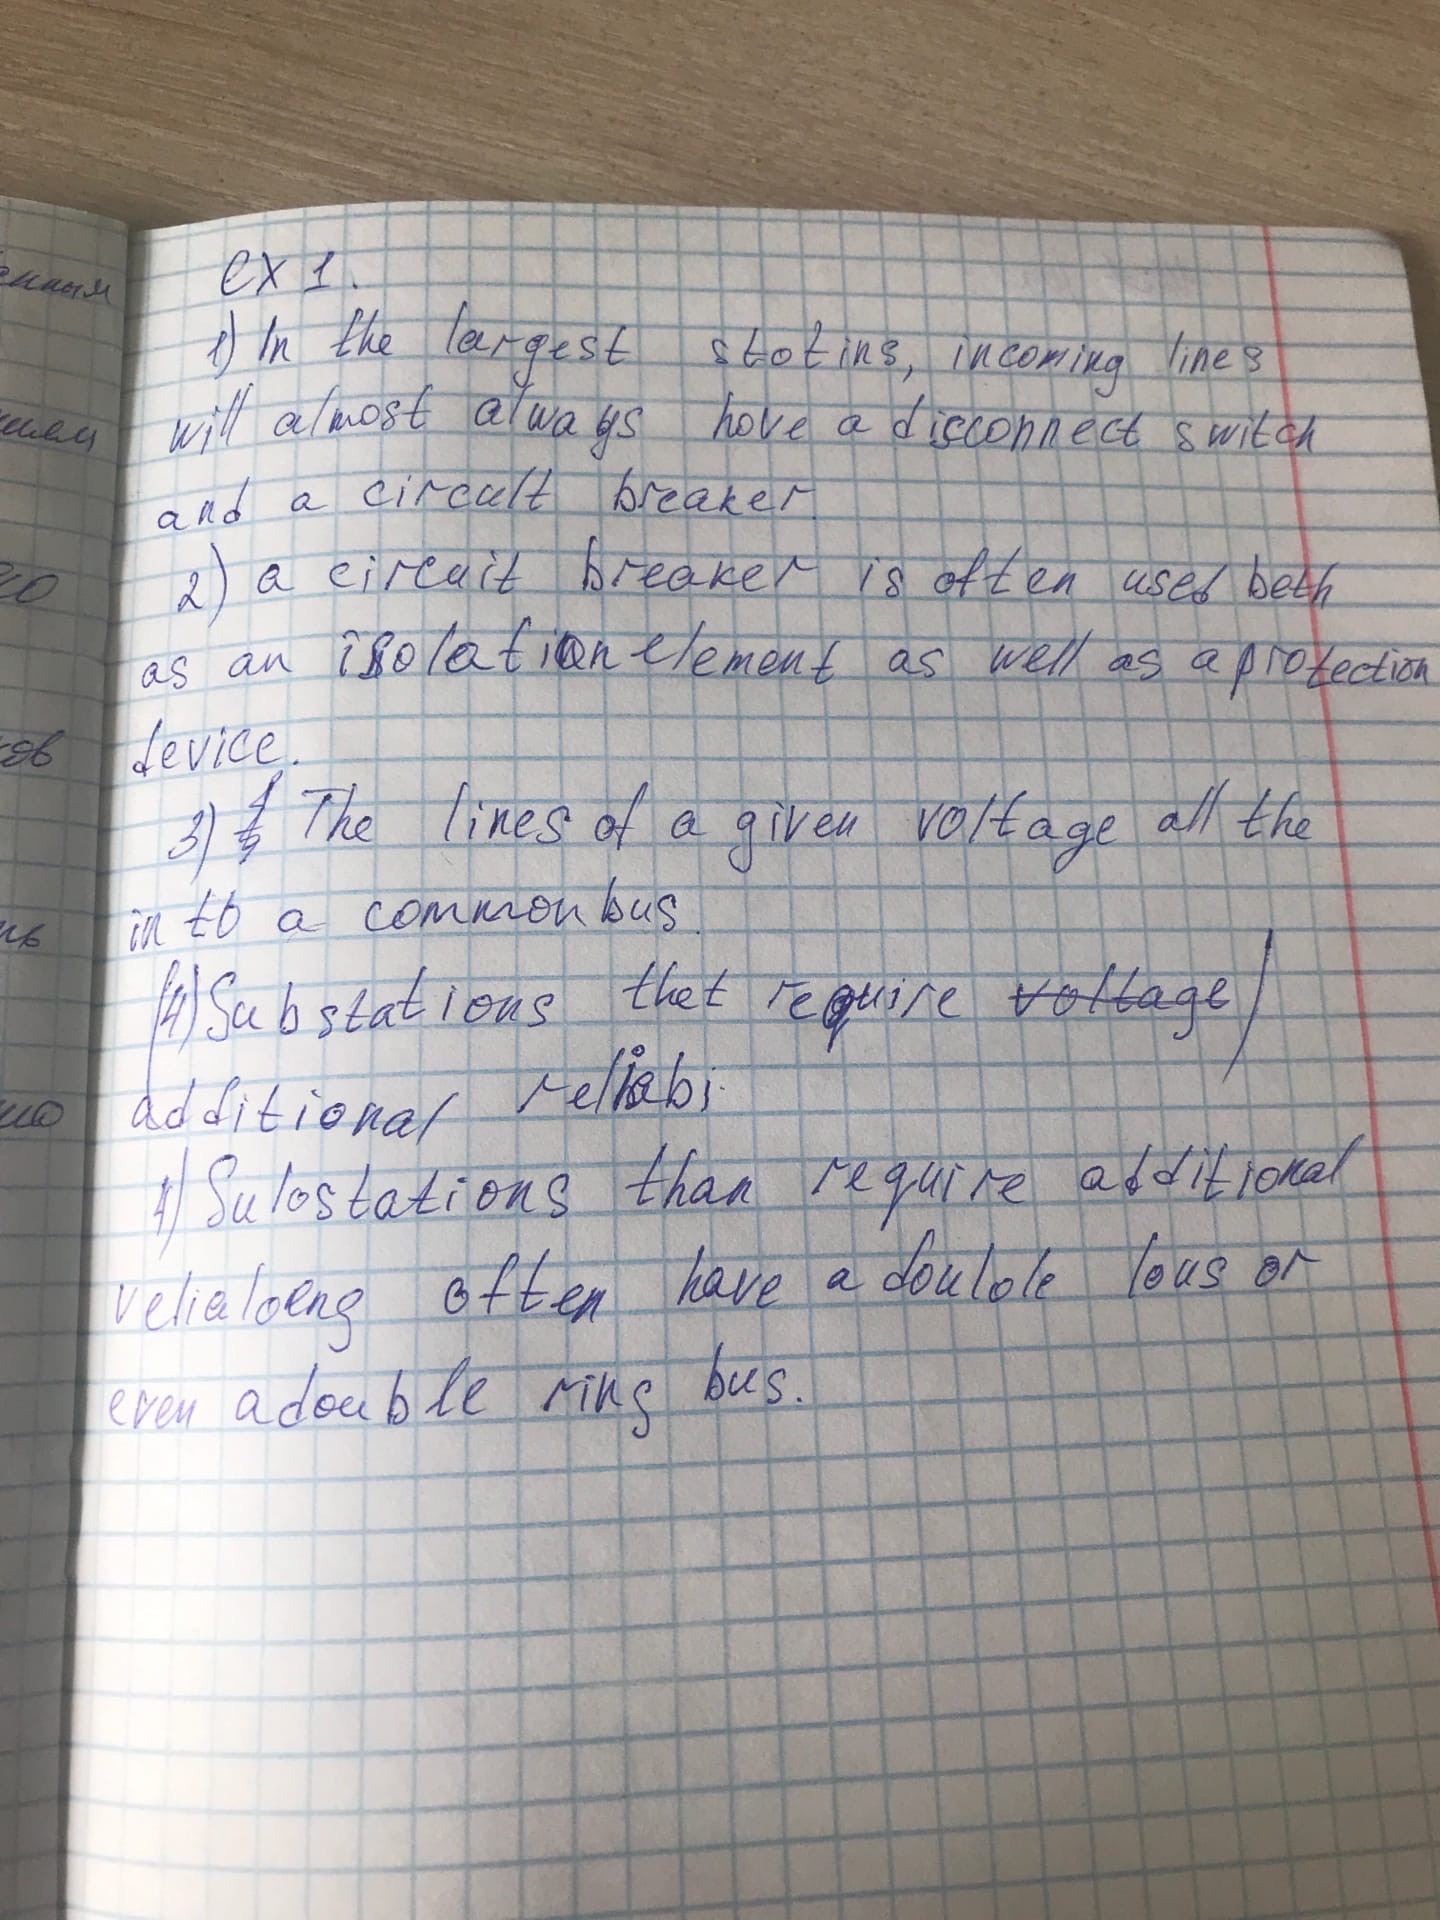 ex 1.
1) In the largest stotins, incoming lines
will almost always hove a disconnect switch
and a circult breaker.
2) a circuit breaker is often used beth
as an isolation element as well as a protection
device.
3) The lines of a given voltage all the
in to a common bus.
(4) Substations thet require voltage)
additional reliabi
4) Sulostations than require additional
velialoeng often have a doulole lous or
even a double ring bus.
енным
ков